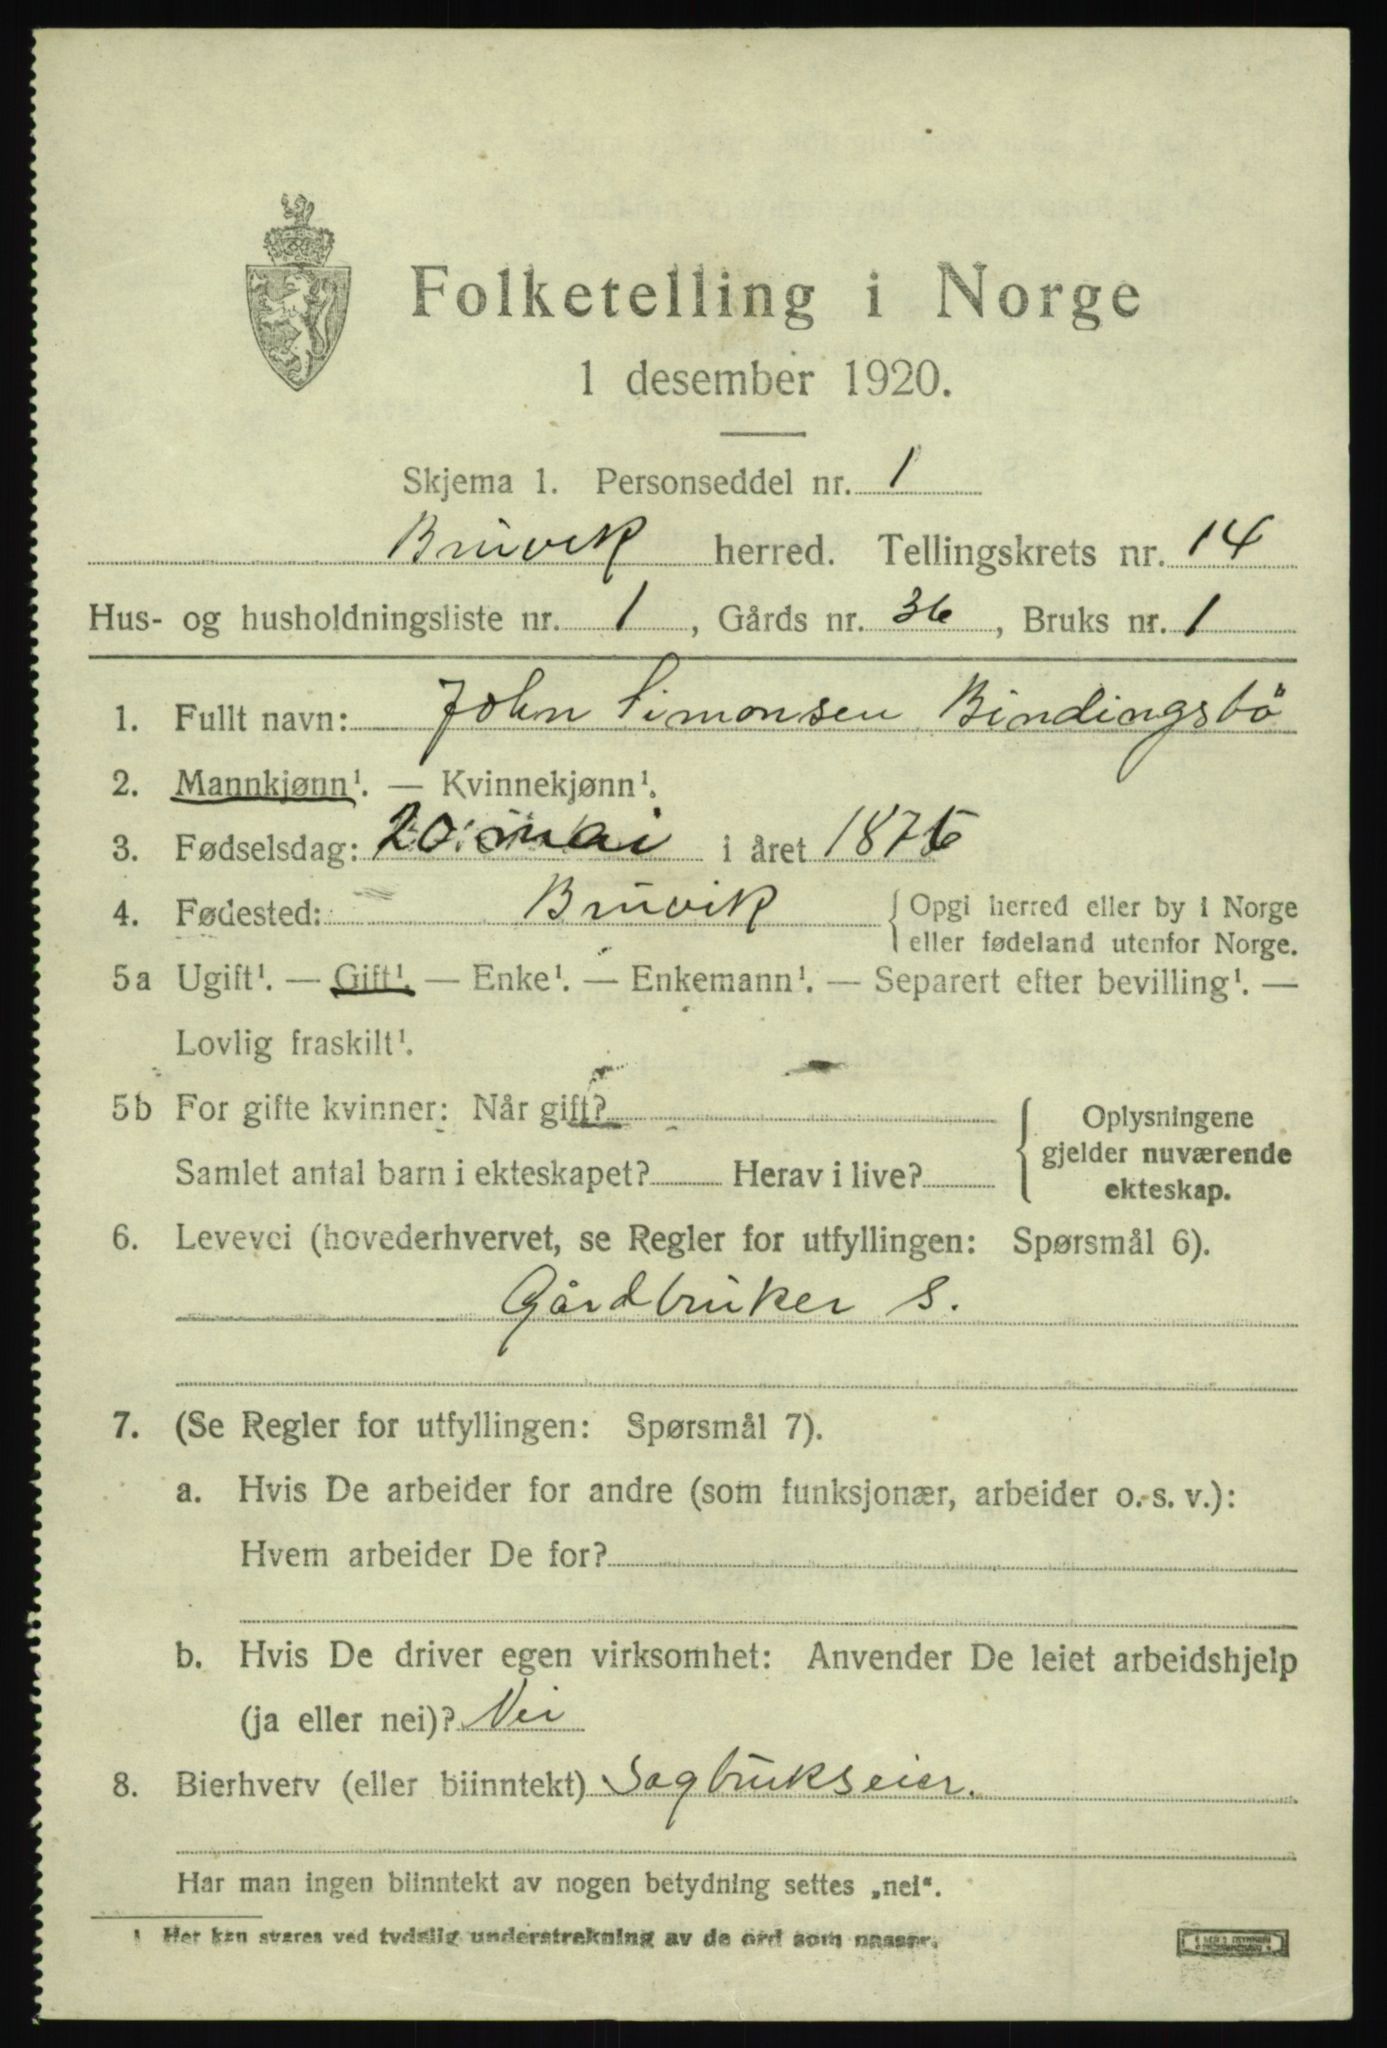 Folketelling i Norge
1 desember 1920.
Skjema 1. Personseddel nr. 1
Bruvik herred. Tellingskrets nr. 14
Hus- og husholdningsliste nr. 1, Gårds nr. 36, Bruks nr. 1
1. Fullt navn: John Simonsen Bindingsbö
2. Mannkjønn¹. — Kvinnekjønn¹.
3. Fødselsdag: 20 mai i året 1876
4. Fødested: Bruvik { Opgi herred eller by i Norge
eller fødeland utenfor Norge.
5a Ugift¹. — Gift¹. — Enke¹. — Enkemann¹. — Separert efter bevilling¹. —
Lovlig fraskilt¹.
5b For gifte kvinner: Når gift? { Oplysningene
gjelder nuværende
Samlet antal barn i ekteskapet? Herav i live? ekteskap.
6. Levevei (hovederhvervet, se Regler for utfyllingen: Spørsmål 6).
Gårdbruker S.
7. (Se Regler for utfyllingen: Spørsmål 7).
a. Hvis De arbeider for andre (som funksjonær, arbeider o. s. v.):
Hvem arbeider De for?
b. Hvis De driver egen virksomhet: Anvender De leiet arbeidshjelp
(ja eller nei)? Nei
8. Bierhverv (eller biinntekt) Sagbrukseier.
Har man ingen biinntekt av nogen betydning settes „nei“.
1 Her kan svares ved tydelig understrekning av de ord som passer.